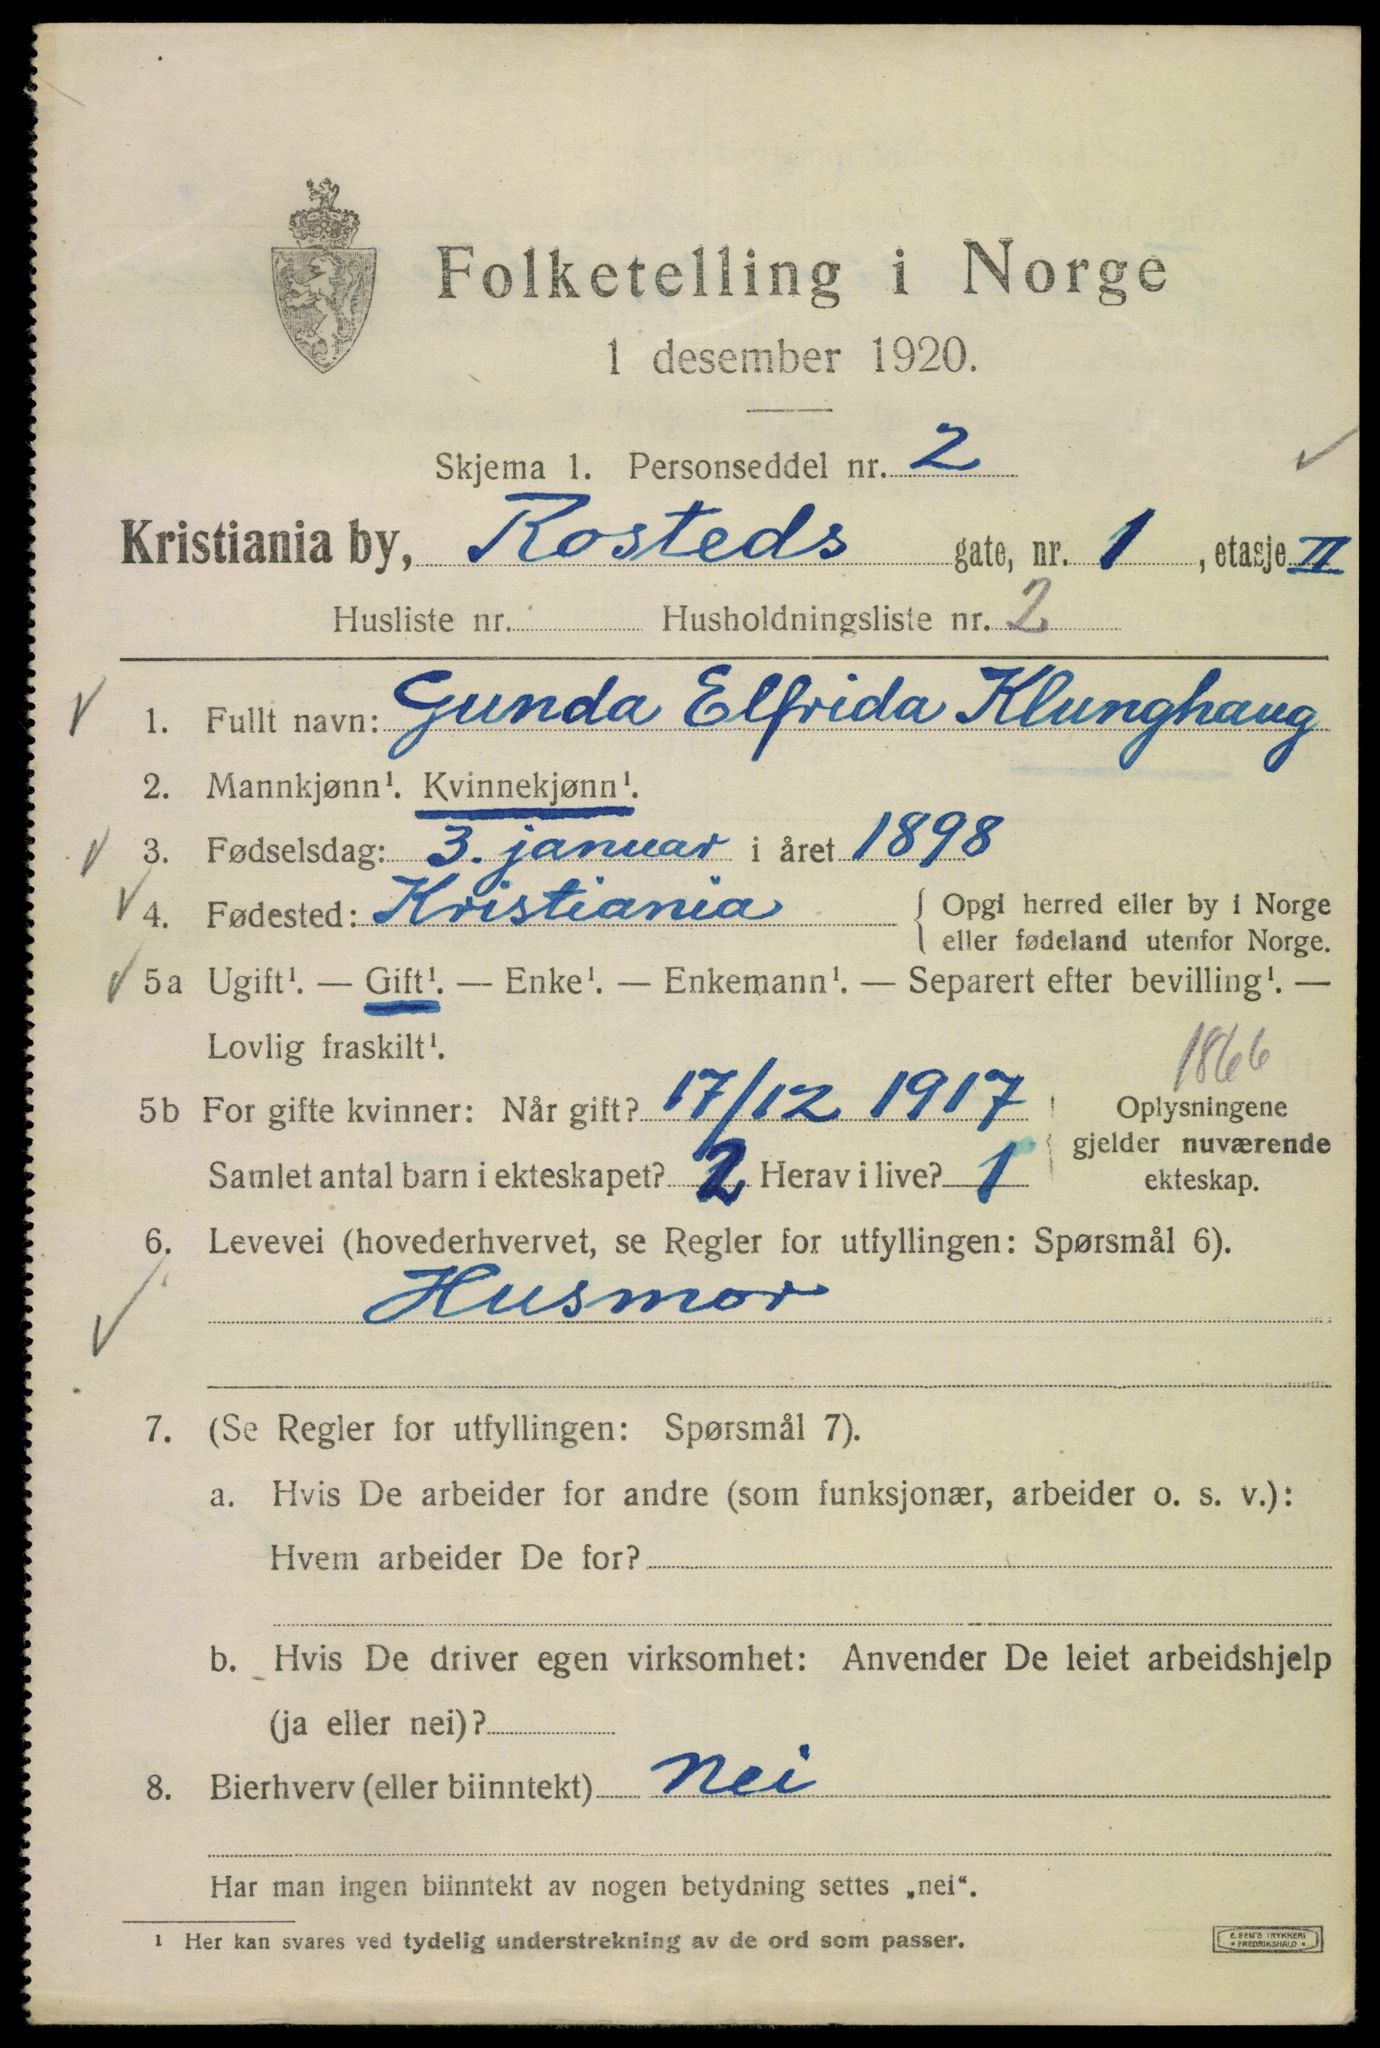 Folketelling i Norge
1 desember 1920.
Skjema 1. Personseddel nr. 2
Kristiania by, Rosteds gate, nr. 1, etasje II
Husliste nr. Husholdningsliste nr. 2
1. Fullt navn: Gunda Elfrida Klunghaug
2. Mannkjønn¹. Kvinnekjønn¹.
3. Fødselsdag: 3. januar i året 1898
4. Fødested: Kristiania { Opgi herred eller by i Norge
eller fødeland utenfor Norge.
5a Ugift¹. — Gift¹. — Enke¹. — Enkemann¹. — Separert efter bevilling¹. —
Lovlig fraskilt¹.
1866
5b For gifte kvinner: Når gift? 17/12 1917 Oplysningene
gjelder nuværende
Samlet antal barn i ekteskapet? 2 Herav i live? 1 ekteskap.
6. Levevei (hovederhvervet, se Regler for utfyllingen: Spørsmål 6).
Husmor
7. (Se Regler for utfyllingen: Spørsmål 7).
a. Hvis De arbeider for andre (som funksjonær, arbeider o. s. v.):
Hvem arbeider De for?
b. Hvis De driver egen virksomhet: Anvender De leiet arbeidshjelp
(ja eller nei)?
8. Bierhverv (eller biinntekt) Nei
Har man ingen biinntekt av nogen betydning settes „nei“.
¹ Her kan svares ved tydelig understrekning av de ord som passer.
E. SEM'S TRYKKERI
• FREDRIKSHALD •